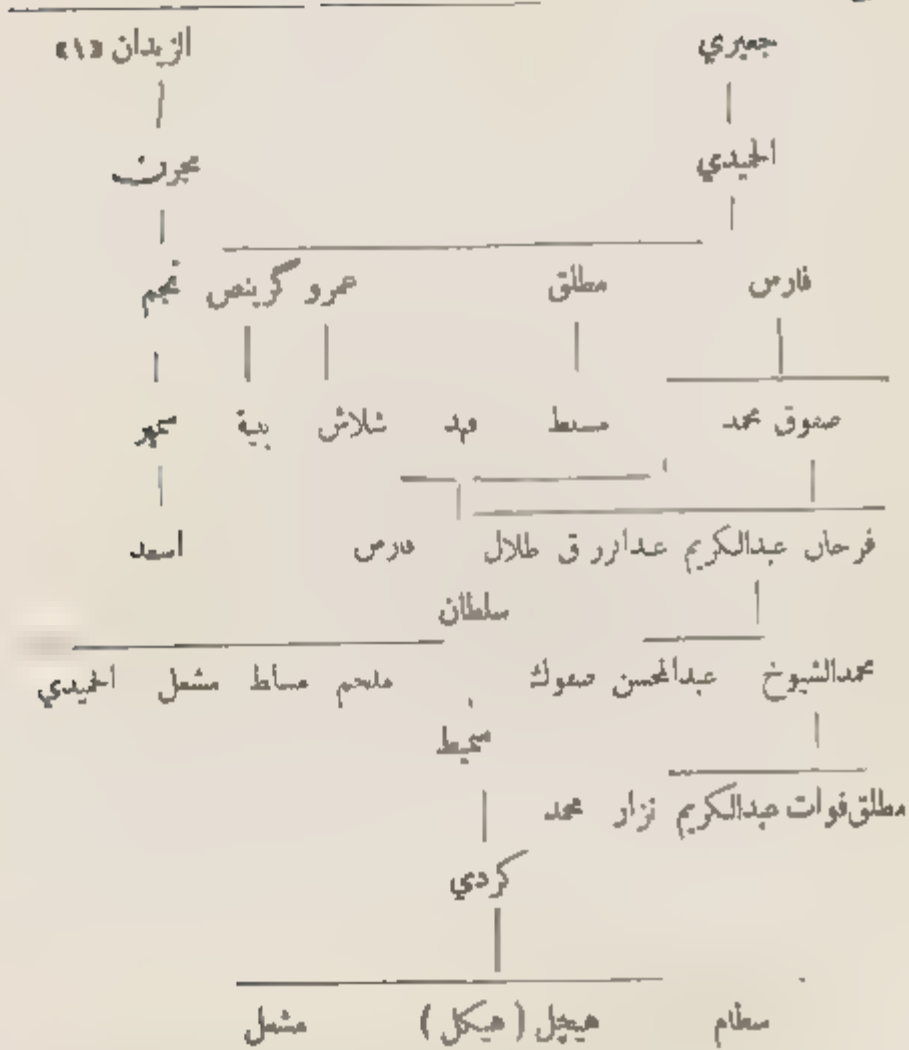 جعيري الزيدان «١»
الحيدي مجرن
فارس مطلق عمرو گرينص نجم
صفوق محمد مسلط فهد شلاش بية سمير
فرحان عبدالكريم عبدالرزاق طلال فارس اسعد
سلطان
محمدالشيوخ عبدالمحسن صفوك ملحم مساط مشعل الحيدي
سميط
مطلق فوات عبدالكريم نزار محمد
كردي
سطام هيچل ( هيكل ) مشعل